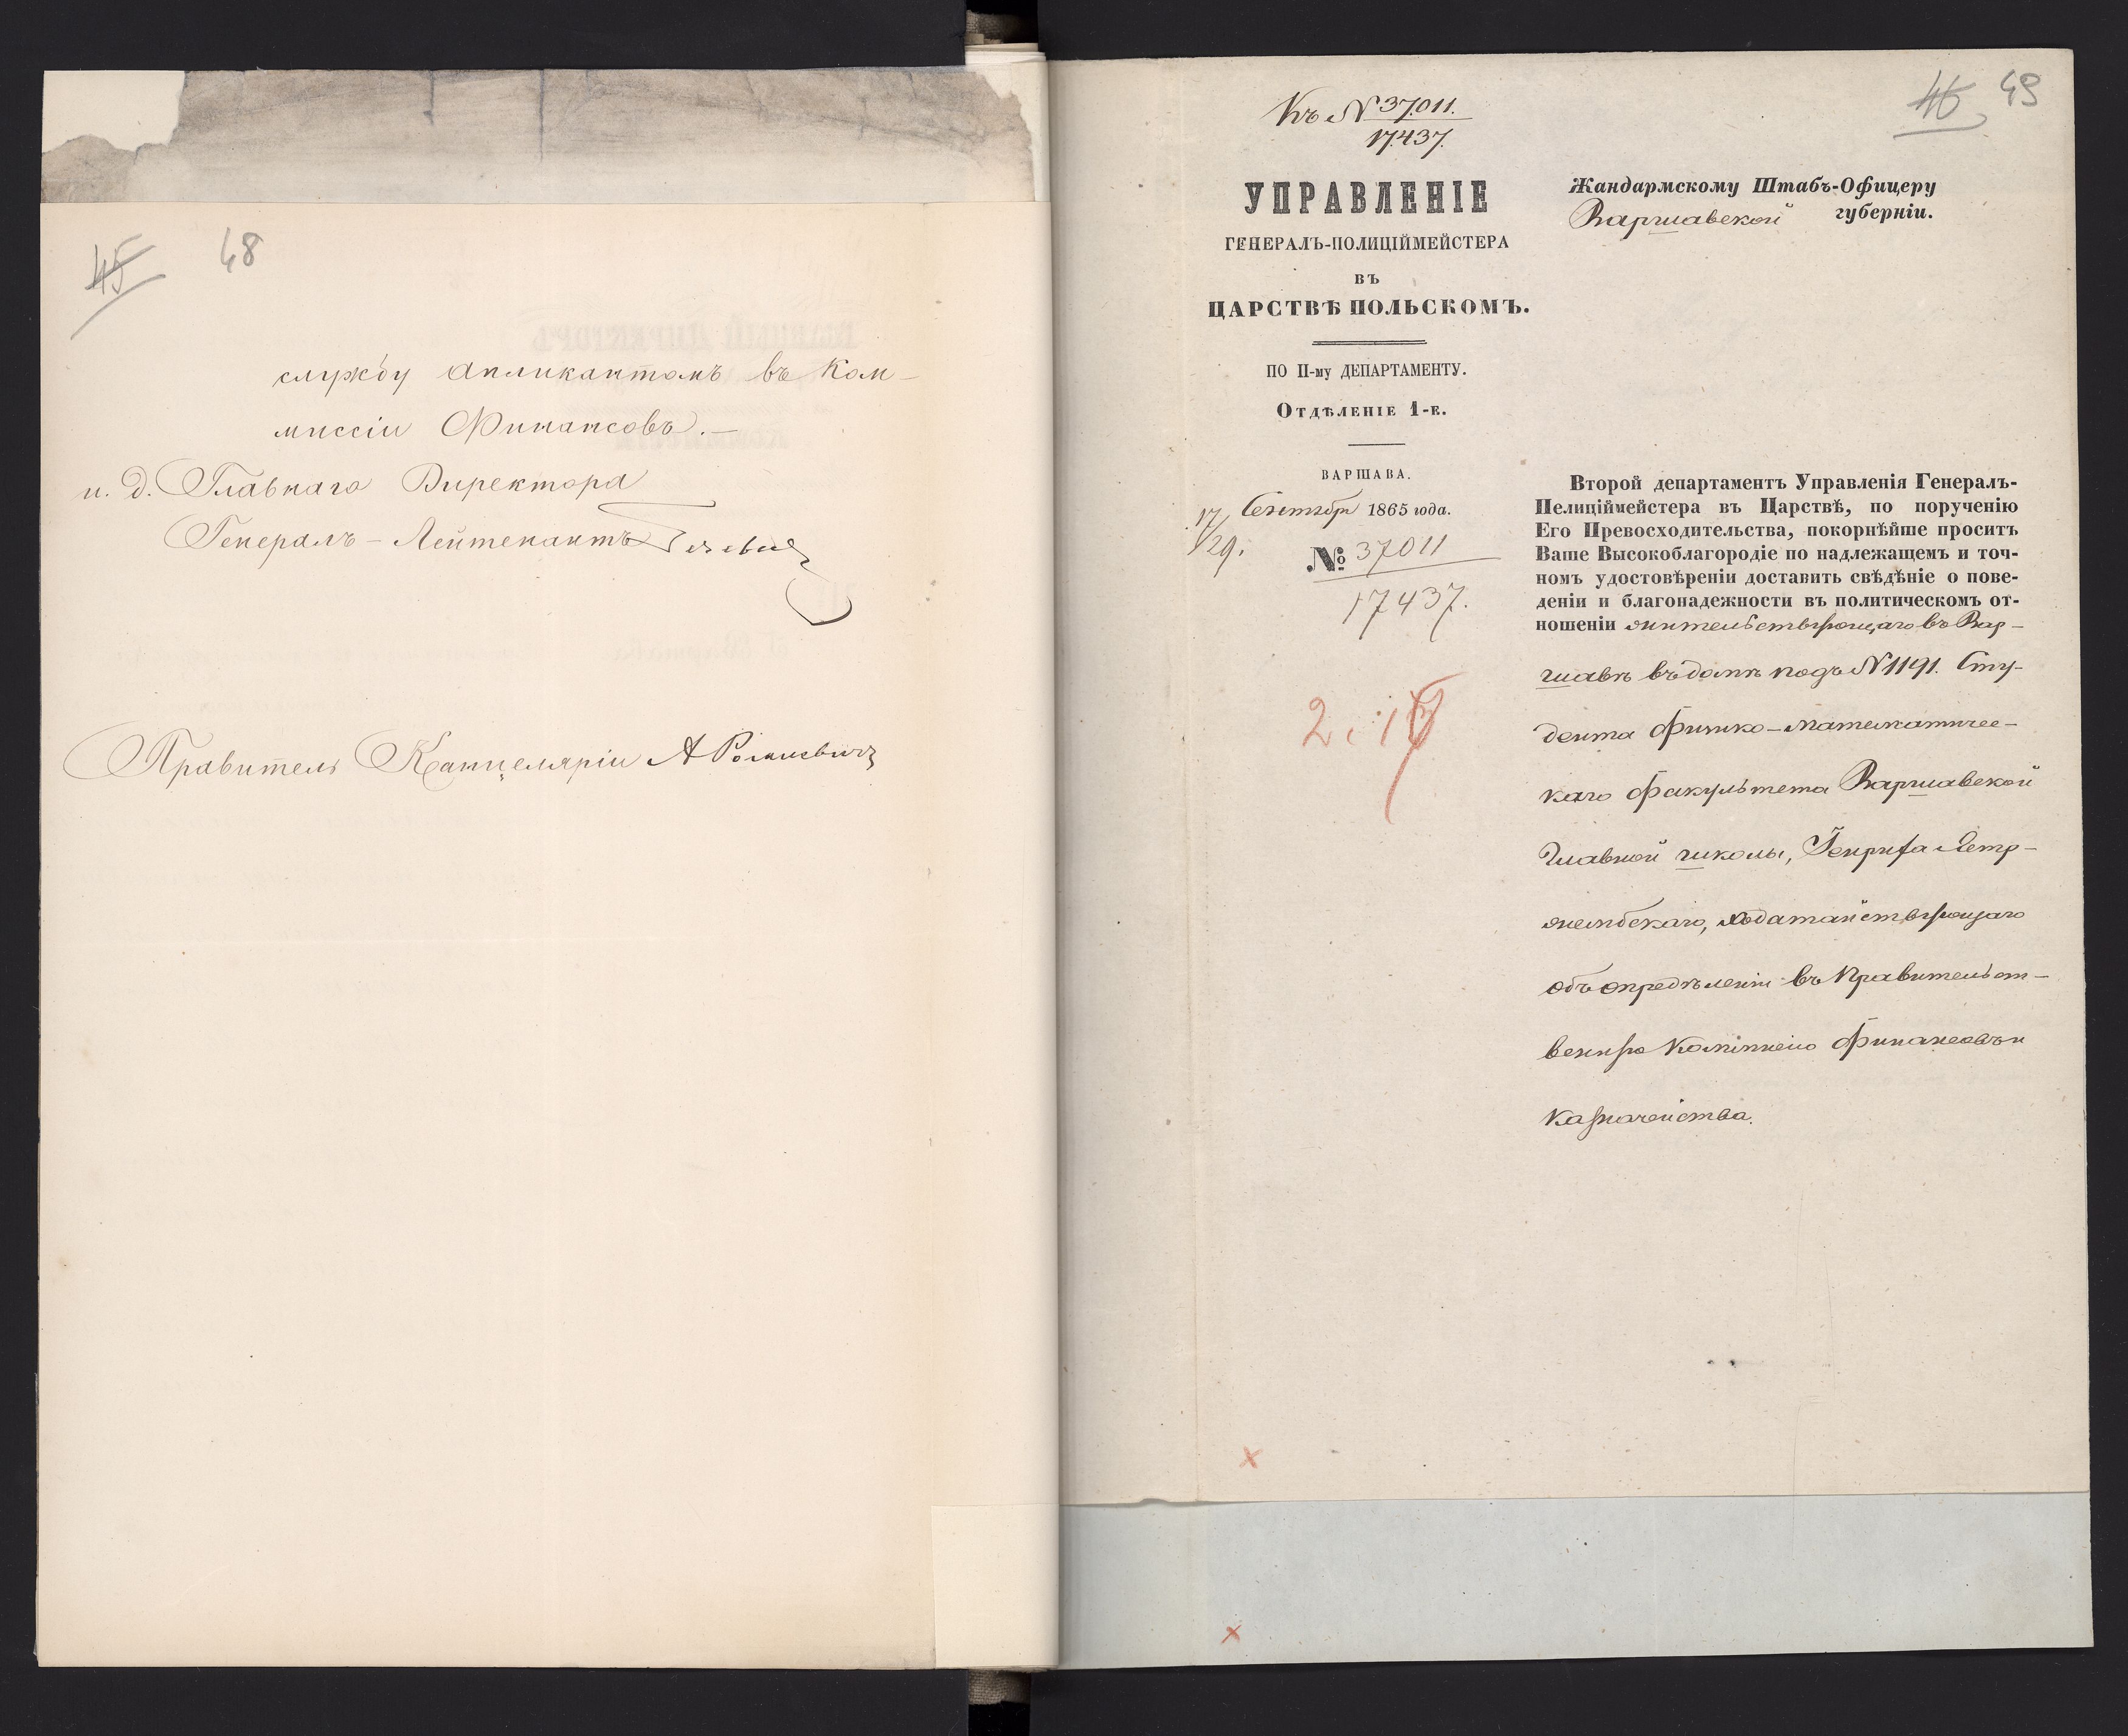 45 48
службу аппликантомъ въ Ком-
миссіи Финансовъ.-
и. д. Главнаго Директора
Генералъ-Лейтенантъ
Правитель Канцеляріи А
46 49
Къ N 37.011.
17.437.
УПРАВЛЕНІЕ
ГЕНЕРАЛЪ-ПОЛИЦІЙМЕЙСТЕРА
ВЪ
ЦАРСТВѢ ПОЛЬСКОМЪ.
ПО II-му ДЕПАРТАМЕНТУ.
Отдѣленіе 1-е.
ВАРШАВА.
17/29. Сентября 1865 года.
№ 37011
17437.
Жандармскому Штабъ-Офицеру
Варшавской губерніи.
Второй департаментъ Управленія Генералъ-
Пелиціймейстера въ Царствѣ, по порученію
Его Превосходительства, покорнѣйше проситъ
Ваше Высокоблагородіе по надлежащемъ и точ-
номъ удостовѣреніи доставить свѣдѣніе о пове-
деніи и благонадежности въ политическомъ от-
ношеніи жительствующаго въ Вар-
шавѣ въ домѣ подъ N 1191. Сту-
дента Физико-Математичес-
каго факультета Варшавской
Главной школы, Генрифа Ястр-
жембскаго, ходатайствующаго
объ опредѣленіи въ Правительст-
венную Коммиссію Финансовъ и
Казначейства.